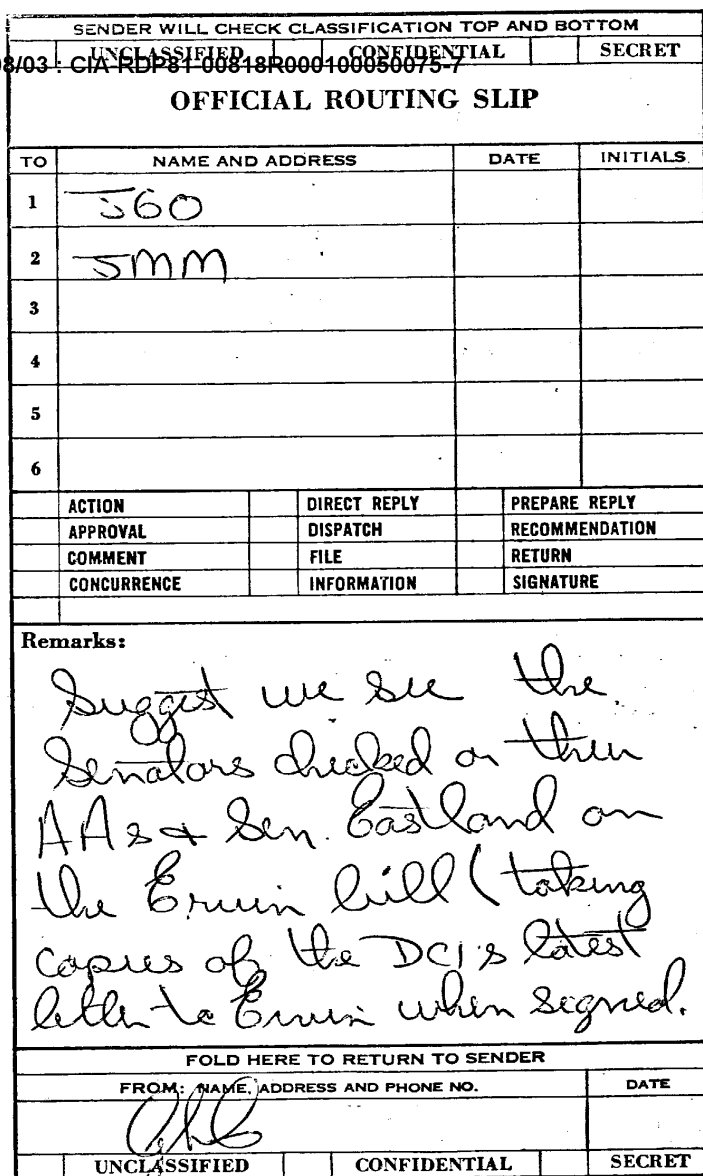 SENDER WILL CHECK CLASSIFICATION TOP AND BOTTOM
UNCLASSIFIED CONFIDENTIAL SECRET
8/03 : CIA-RDP81-00818R000100050075-7
OFFICIAL ROUTING SLIP
TO NAME AND ADDRESS DATE INITIALS
1 JGO
2 JMM
3
4
5
6
ACTION DIRECT REPLY PREPARE REPLY
APPROVAL DISPATCH RECOMMENDATION
COMMENT FILE RETURN
CONCURRENCE INFORMATION SIGNATURE
Remarks:
Suggest we see the
Senators checked or their
AAs & Sen. Eastland on
the Ervin bill (taking
copies of the DCI's latest
letter to Ervin when signed.
FOLD HERE TO RETURN TO SENDER
FROM: NAME, ADDRESS AND PHONE NO. DATE
UNCLASSIFIED CONFIDENTIAL SECRET